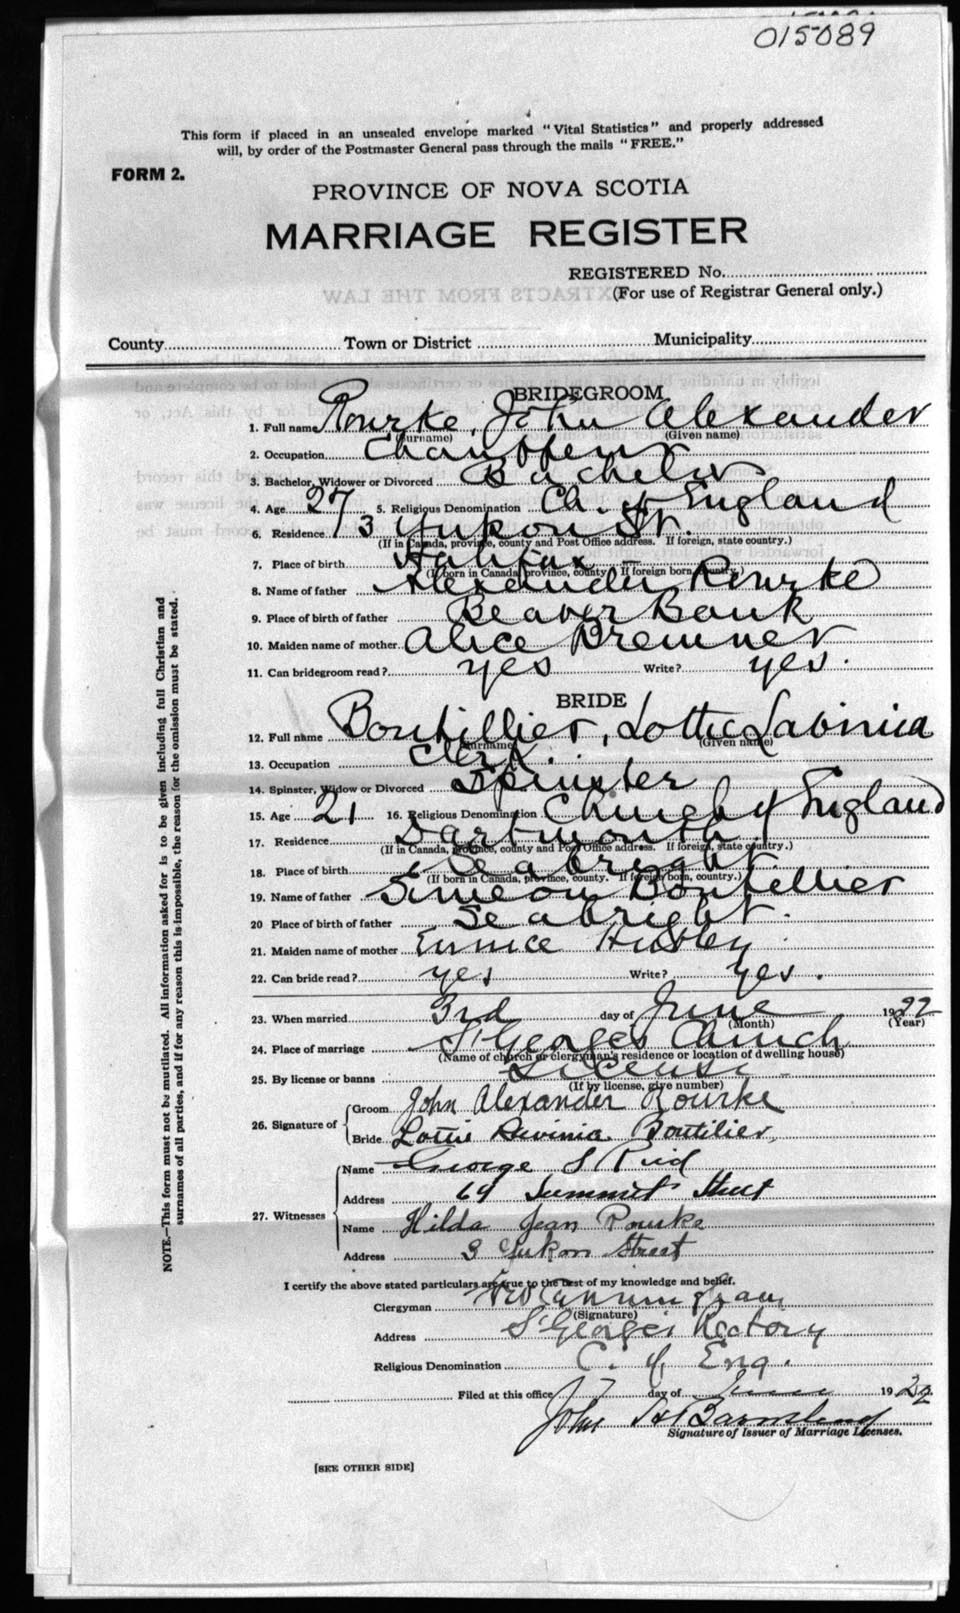 015089
This form if placed in an unsealed envelope marked "Vital Statistics" and properly addressed
will, by order of the Postmaster General pass through the mails "FREE."
FORM 2.
PROVINCE OF NOVA SCOTIA
MARRIAGE REGISTER
REGISTERED No.
(For use of Registrar General only.)
EXTRACTS FROM THE LAW
County Town or District Municipality
BRIDEGROOM
1. Full name Rourke, John Alexander
(Surname) (Given name)
2. Occupation Chauffeur
3. Bachelor, Widower or Divorced Bachelor
4. Age 27 5. Religious Denomination Ch. of England
6. Residence 3 Yukon St.
(If in Canada, province, county and Post Office address. If foreign, state country.)
7. Place of birth Halifax
(If born in Canada, province, county. If foreign born, country.)
8. Name of father Alexander Rourke
9. Place of birth of father Beaver Bank
10. Maiden name of mother Alice Bremner
11. Can bridegroom read? yes Write? yes.
BRIDE
12. Full name Boutillier, Lottie Lavinia
(Surname) (Given name)
13. Occupation Clerk.
14. Spinster, Widow or Divorced Spinster
15. Age 21 16. Religious Denomination Church of England
17. Residence Dartmouth
(If in Canada, province, county and Post Office address. If foreign, state country.)
18. Place of birth Seabright
(If born in Canada, province, county. If foreign born, country.)
19. Name of father Simeon Boutillier
20 Place of birth of father Seabright.
21. Maiden name of mother Eunice Hubley
22. Can bride read? yes Write? yes.
23. When married 3rd day of June 1922
(Month) (Year)
24. Place of marriage St Georges Church
(Name of church or clergyman's residence or location of dwelling house)
25. By license or banns License
(If by license, give number)
26. Signature of Groom John Alexander Rourke
Bride Lottie Lavinia Boutilier
27. Witnesses Name George S Reid
Address 64 Summit Street
Name Hilda Jean Rourke
Address 3 Yukon Street
I certify the above stated particulars are true to the best of my knowledge and belief.
Clergyman Cunningham
(Signature)
Address St George's Rectory
Religious Denomination C. of Eng.
Filed at this office 17 day of June 1922
John
Signature of Issuer of Marriage Licenses.
[SEE OTHER SIDE]
NOTE.—This form must not be mutilated. All information asked for is to be given including full Christian and
surnames of all parties, and if for any reason this is impossible, the reason for the omission must be stated.